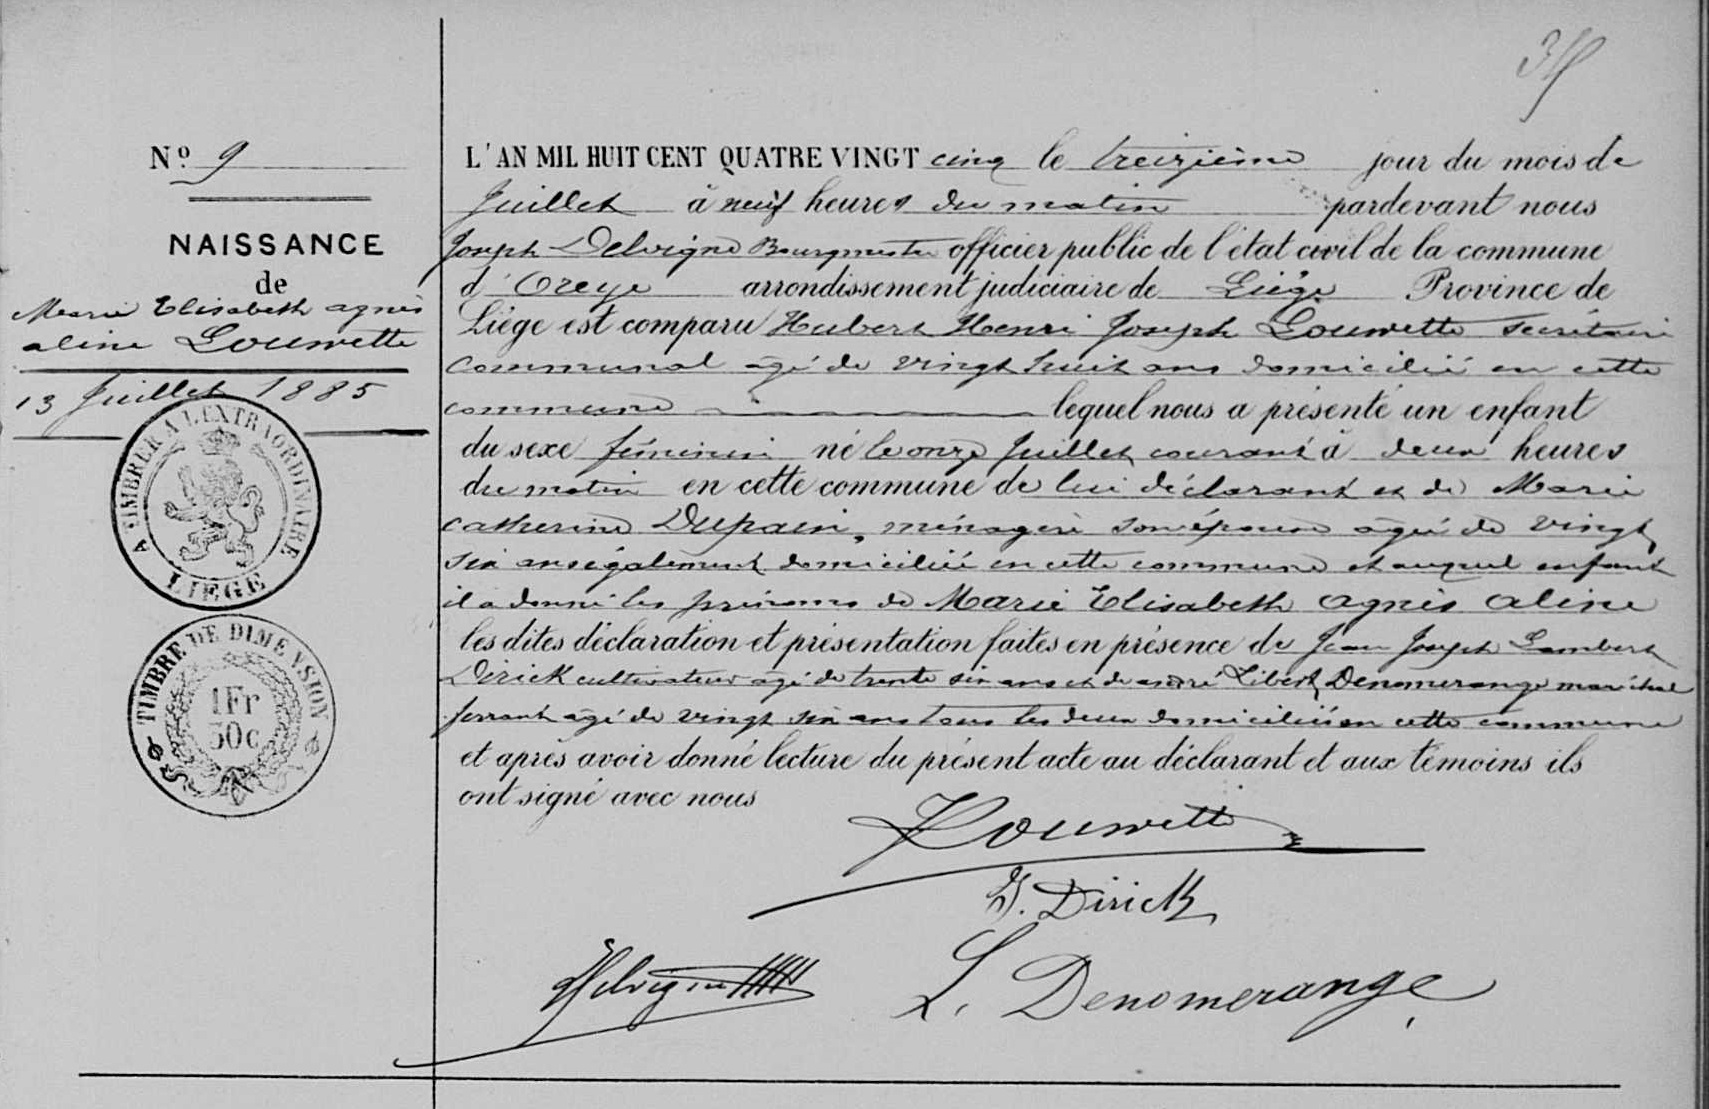 N° 9
NAISSANCE
de
Marie Elisabeth agnès
aline Louwette
13 Juillet 1885
A TIMBRER A L'EXTRAORDINAIRE
LIEGE
TIMBRE DE DIMENSION
1Fr
50c
L'AN MIL HUIT CENT QUATRE VINGT cinq le treizième jour du mois de
Juillet à neuf heures du matin pardevant nous
Joseph Delvigne Bourgmestre officier public de l'état civil de la commune
d'Oreye arrondissement judiciaire de Liége Province de
Liège est comparu Hubert Henri Joseph Louwette secrétaire
communal âgé de vingt huit ans domicilié en cette
commune lequel nous a présenté un enfant
du sexe féminin né le onze Juillet courant à deux heures
du matin en cette commune de lui déclarant et de Marie
catherine Dupain, ménagère son épouse âgée de vingt
six ans également domiciliée en cette commune et auquel enfant
il a donné les prénoms de Marie Elisabeth agnès aline
les dites déclaration et présentation faites en présence de Jean Joseph Lambert
Dirick cultivateur âgé de trente six ans et de andré Libert Denomerange maréchal
ferrant âgé de vingt six ans tous les deux domiciliés en cette commune
et après avoir donné lecture du présent acte au déclarant et aux témoins ils
ont signé avec nous
Louwette
Dirick
Delvigne
L. Denomerange